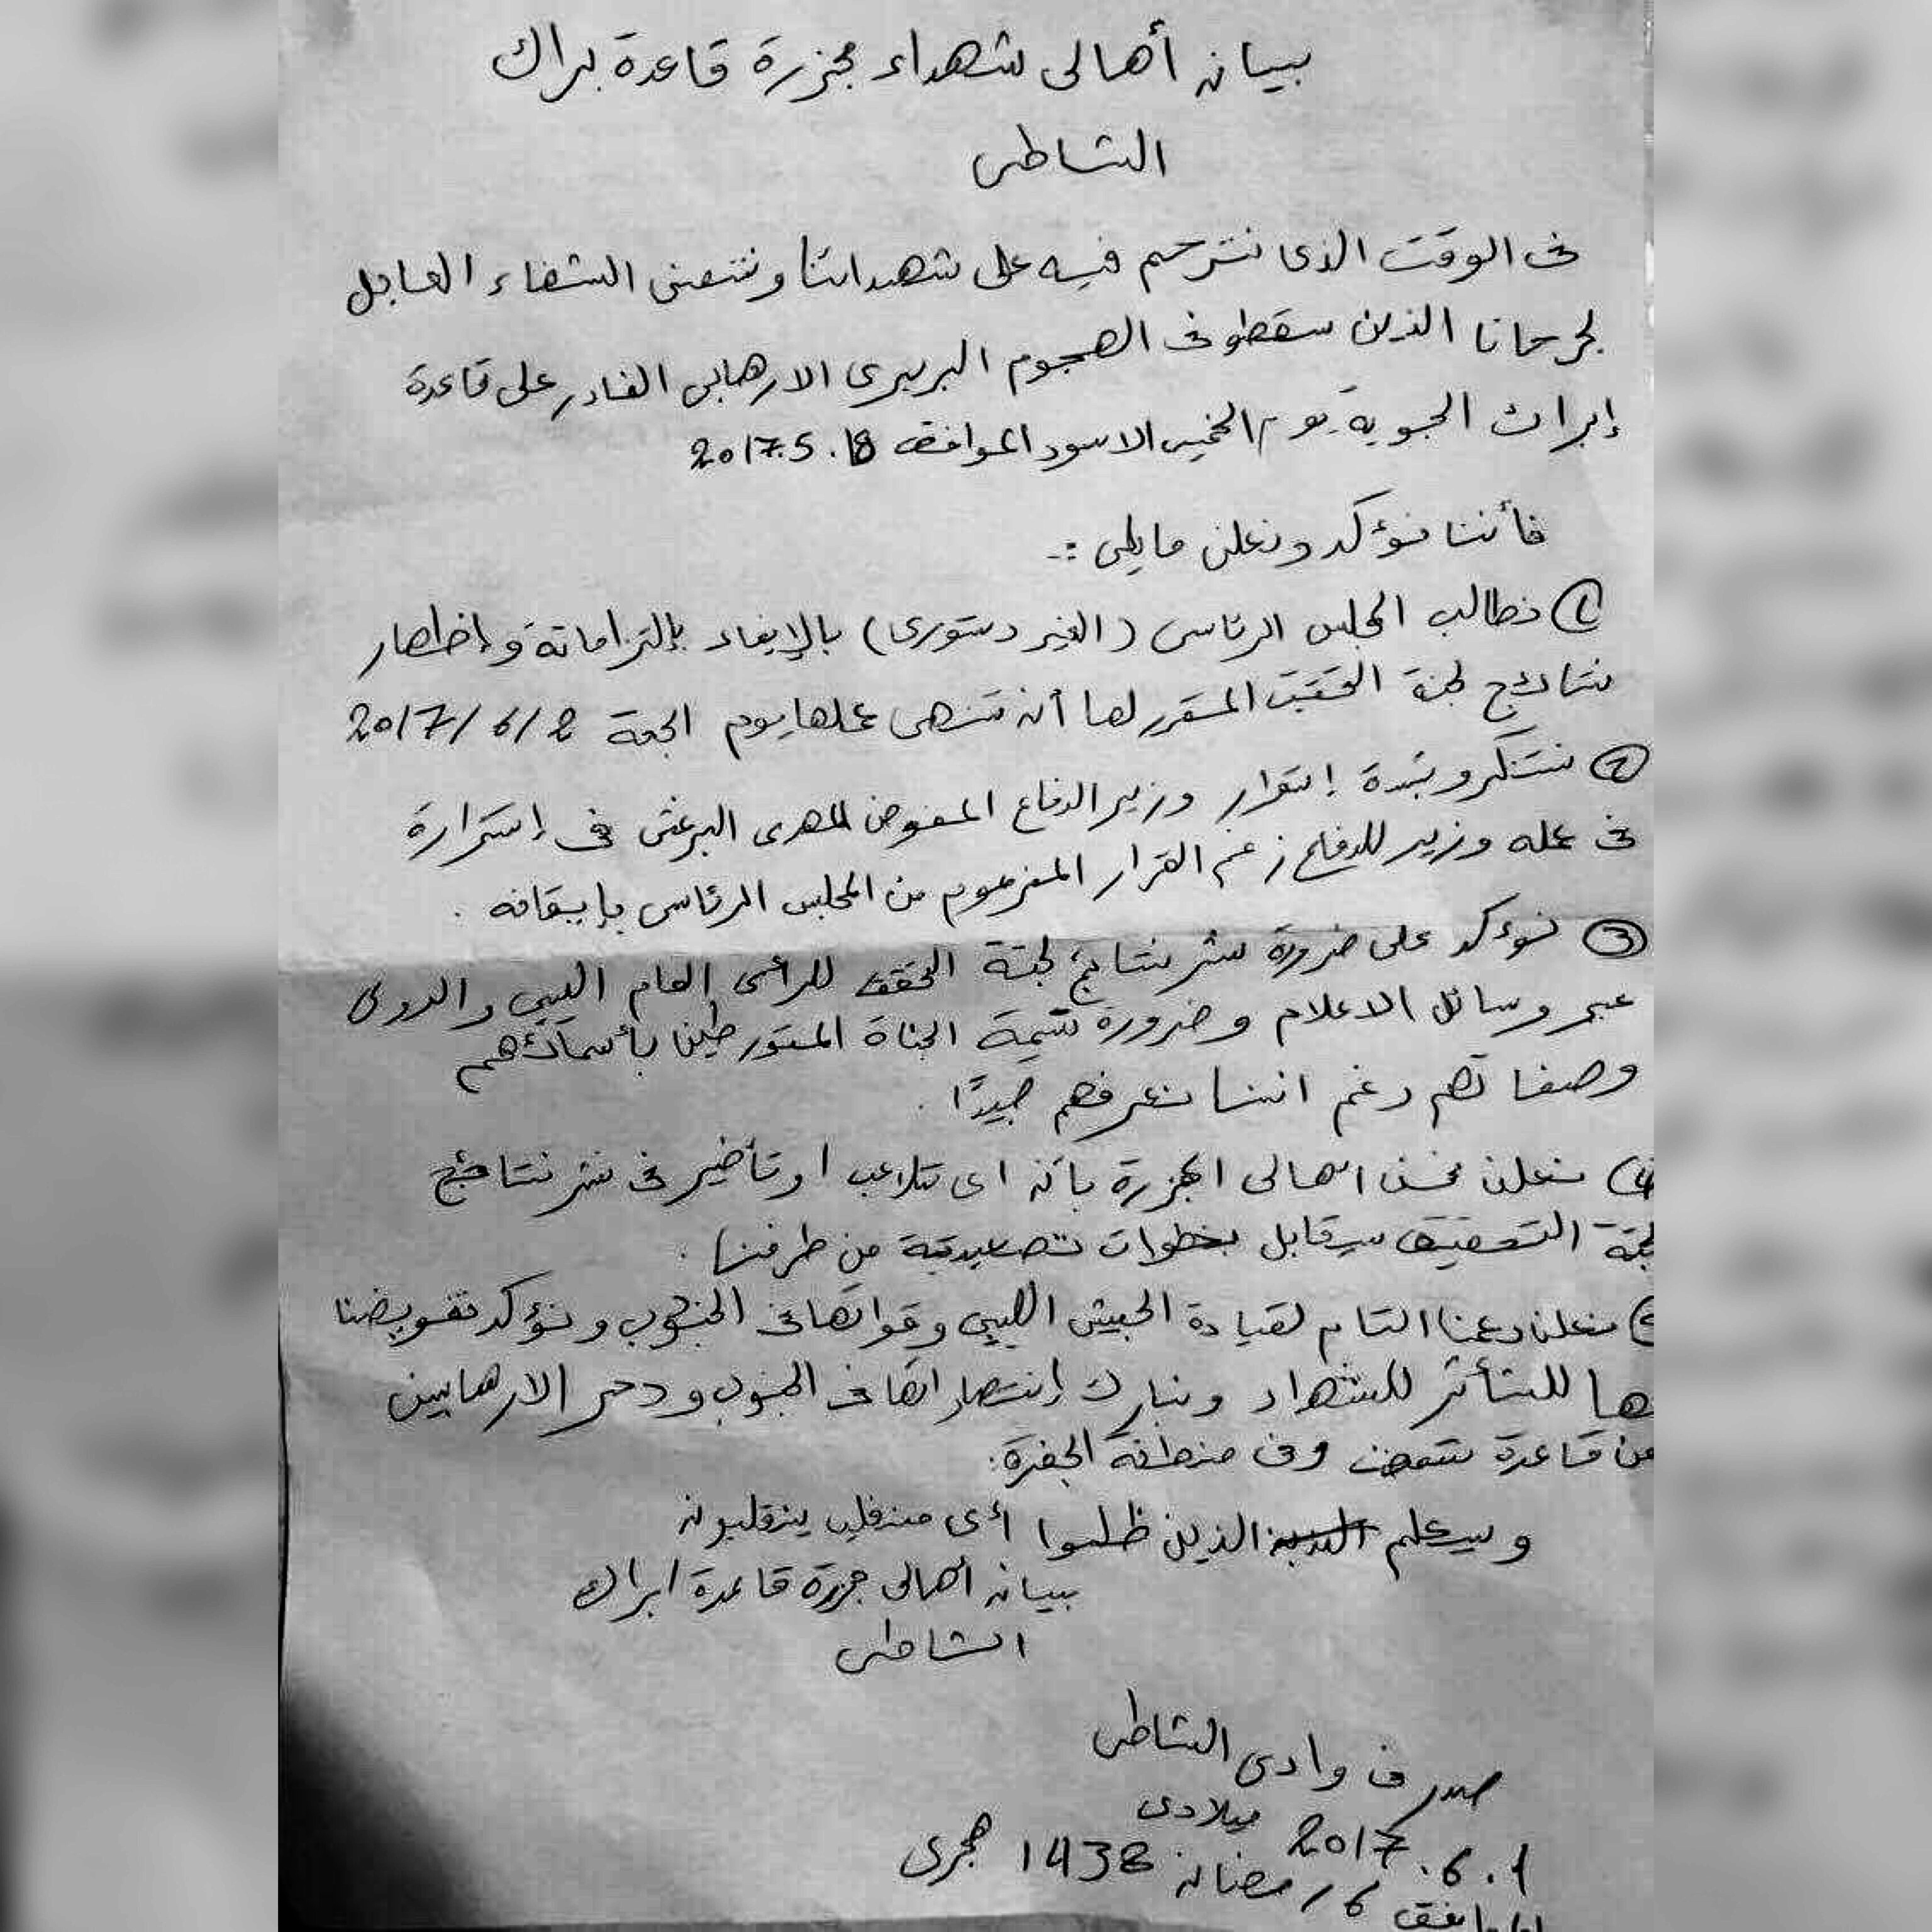 بيان أهالى شهداء مجزرة قاعدة براك
الشاطى
فى الوقت الذى نترحم فيه على شهدائنا ونتمنى الشفاء العاجل
لجرحانا الذين سقطو فى الهجوم البربرى الارهابى الغادر على قاعدة
إبراك الجوية يوم الخميس الاسود الموافق 2017.5.18
فأننا نؤكد ونعلن مايلى :-
1 نطالب المجلس الرئاسى (الغير دستورى) بالإيفاء بإلتزاماتة وإظهار
نتائج لجنة التحقيق المقرر لها أن تنهى عملها يوم الجمعة 2017/6/2
2 نستنكر وبشدة إستمرار وزير الدفاع المفوض المهدى البرغثى فى إستمرارة
فى عمله وزير للدفاع رغم القرار المزعوم من المجلس الرئاسى بإيقافه .
3 نوءكد على ضرورة نشر نتائج لجنة التحقيق للرأى العام الليبي والدولى
عبر وسائل الاعلام وضرورة تسمية الجناة المتورطين بأسمائهم
وصفاتهم رغم اننا نعرفهم جيدًا .
4) نعلن نحن اهالى المجزرة بأن اى تلاعب او تأخير فى نشر نتائج
لجنة التحقيق سيقابل بخطوات تصعيدية من طرفنا .
5 نعلن دعمنا التام لقيادة الجيش الليبي وقواتها فى الجنوب ونؤكد تفويضنا
لها للتأثر للشهداء ونبارك إنتصاراتها فى الجنوب ودحر الارهابيين
من قاعدة تمنهنت وفى منطقة الجفرة .
وسيعلم الذين ظلموا أى منقلب ينقلبون
بيان أهالى مجزرة قاعدة ابراك
الشاطى
صدر فى وادى الشاطى
1.6.2017 ميلادى
الموافق 6 رمضان 1438 هجرى